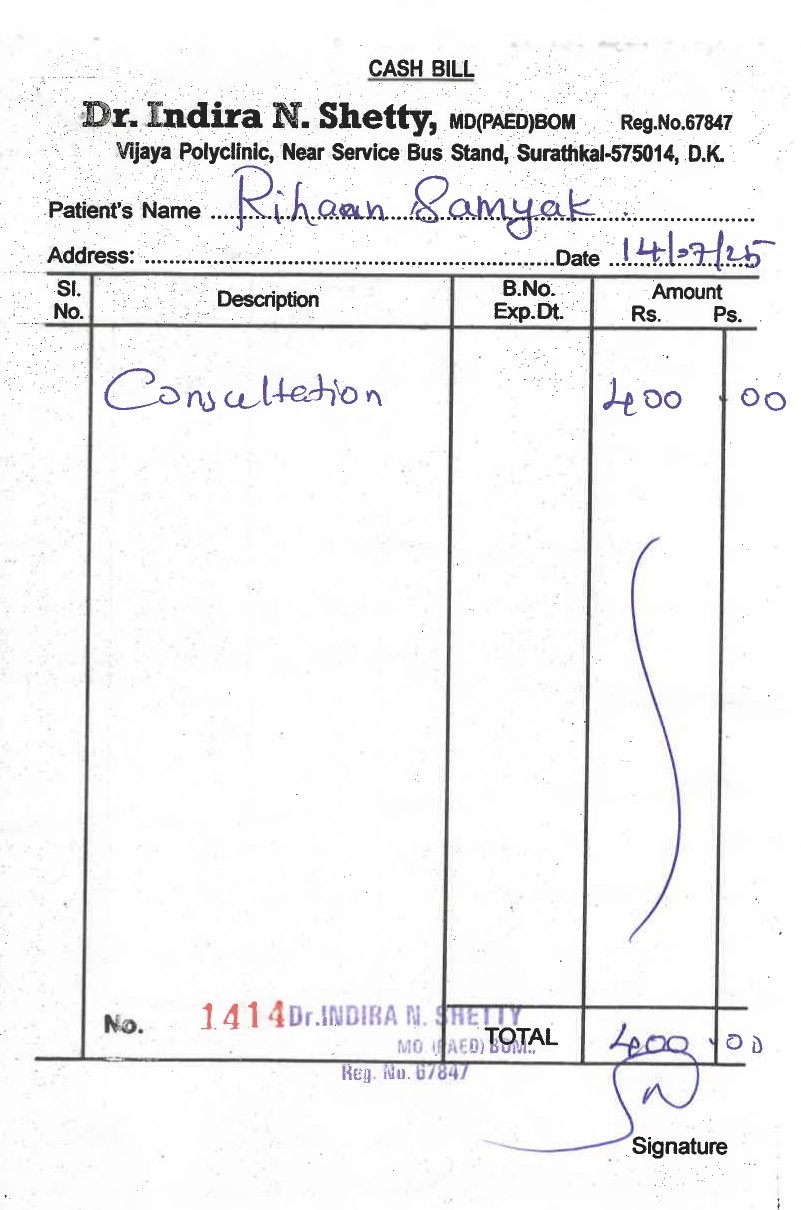 CASH BILL
Dr. Indira N. Shetty, MD(PAED)BOM Reg.No.67847
Vijaya Polyclinic, Near Service Bus Stand, Surathkal-575014, D.K.
Patient's Name Rihaan Samyak
Address: Date 14/07/25
Sl. No. Description B.No. Exp.Dt. Amount Rs. Ps.
Consultetion 400 00
No. 1414 Dr.INDIRA N. SHETTY
MD (PAED) BOM.
TOTAL 400 00
Reg. No. 67847
Signature